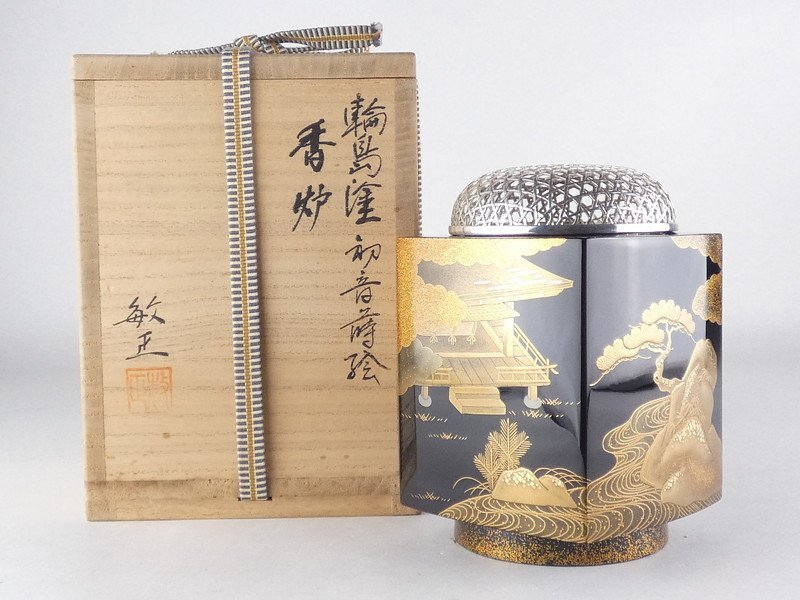 輪島塗初音蒔絵
香炉
敏正